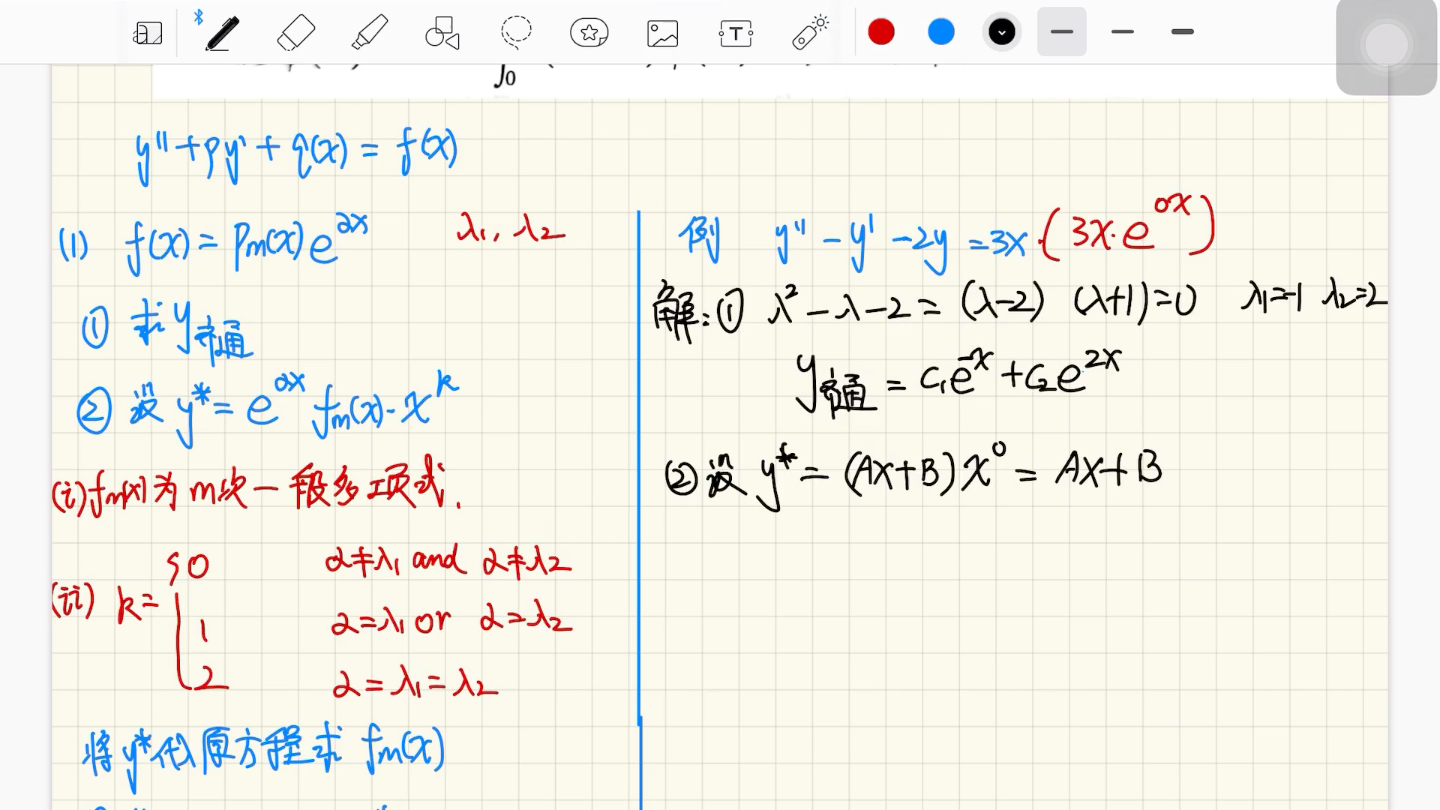 ∫0
y'' + py' + q(x) = f(x)
(1) f(x) = Pm(x) e^{αx} λ₁, λ₂
① 求 y齐通
② 设 y* = e^{αx} fm(x)·x^k
(i) fm(x) 为 m次一般多项式.
(ii) k = { 0 α≠λ₁ and α≠λ₂
1 α=λ₁ or α=λ₂
2 α=λ₁=λ₂
将 y* 代入原方程求 fm(x)
例 y'' - y' - 2y = 3x·(3x·e^{0x})
解: ① λ² - λ - 2 = (λ-2) (λ+1) = 0 λ₁=-1 λ₂=2
y齐通 = C₁e^{-x} + C₂e^{2x}
② 设 y* = (Ax+B) x⁰ = Ax+B